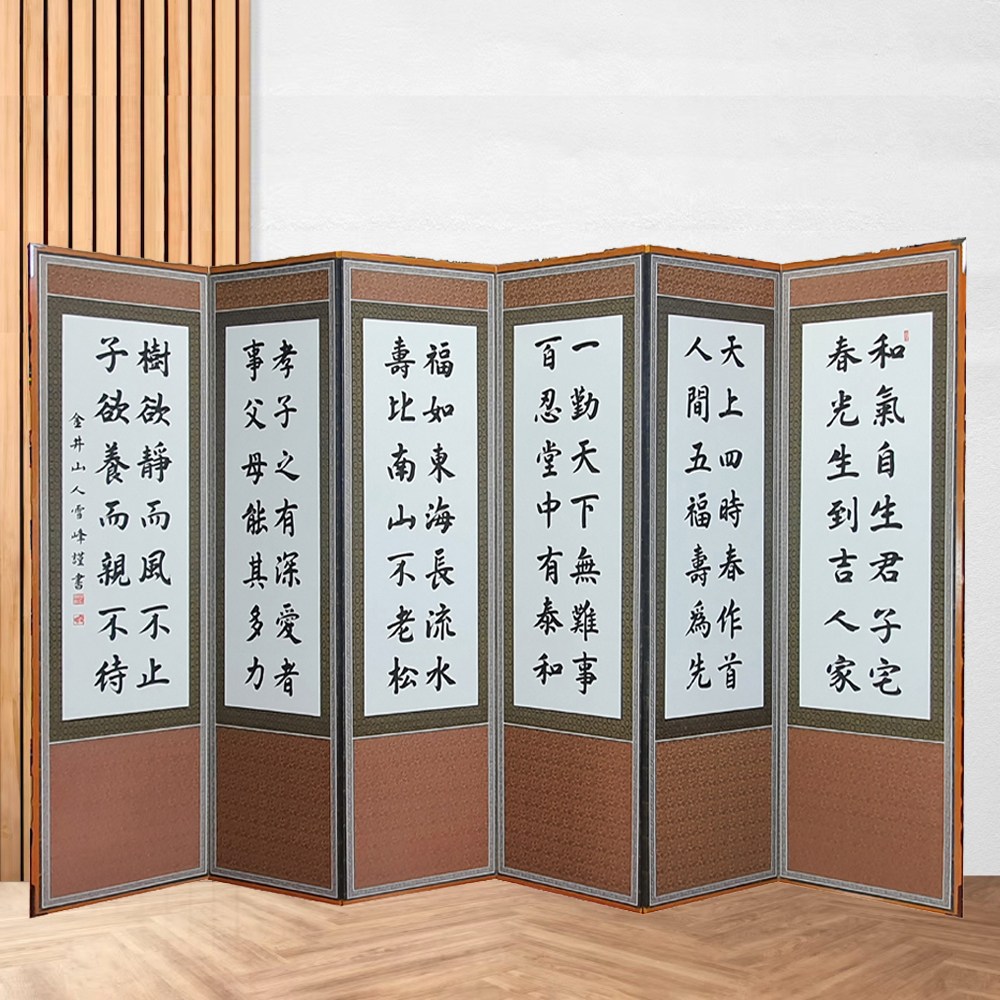 和氣自生君子宅
春光生到吉人家
天上四時春作首
人間五福壽爲先
一勤天下無難事
百忍堂中有泰和
福如東海長流水
壽比南山不老松
孝子之有深愛者
事父母能其多力
樹欲靜而風不止
子欲養而親不待
金井山人雪峰謹書